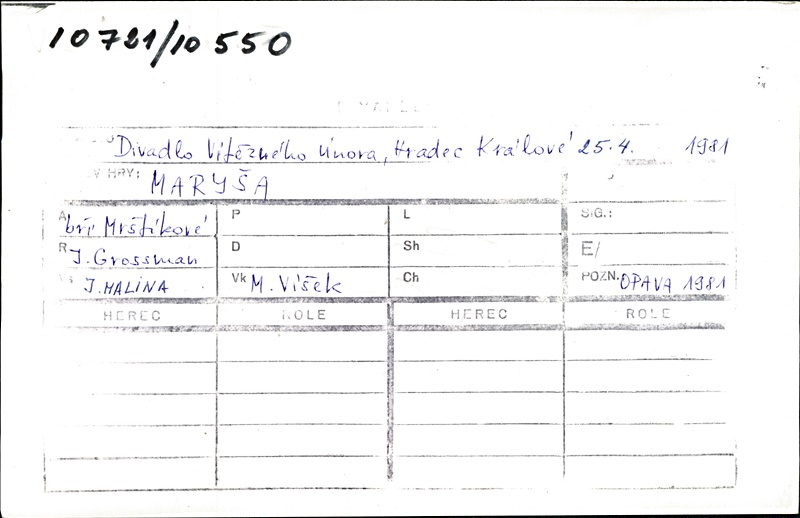 10721/10550
Divadlo Vítězného února, Hradec Králové 25.4. 1981
HRY: MARYŠA
A bří Mrštíkové P L SIG.:
R J. Grossman D Sh E/
J. HALINA Vk M. Víšek Ch POZN. OPAVA 1981
HEREC ROLE HEREC ROLE